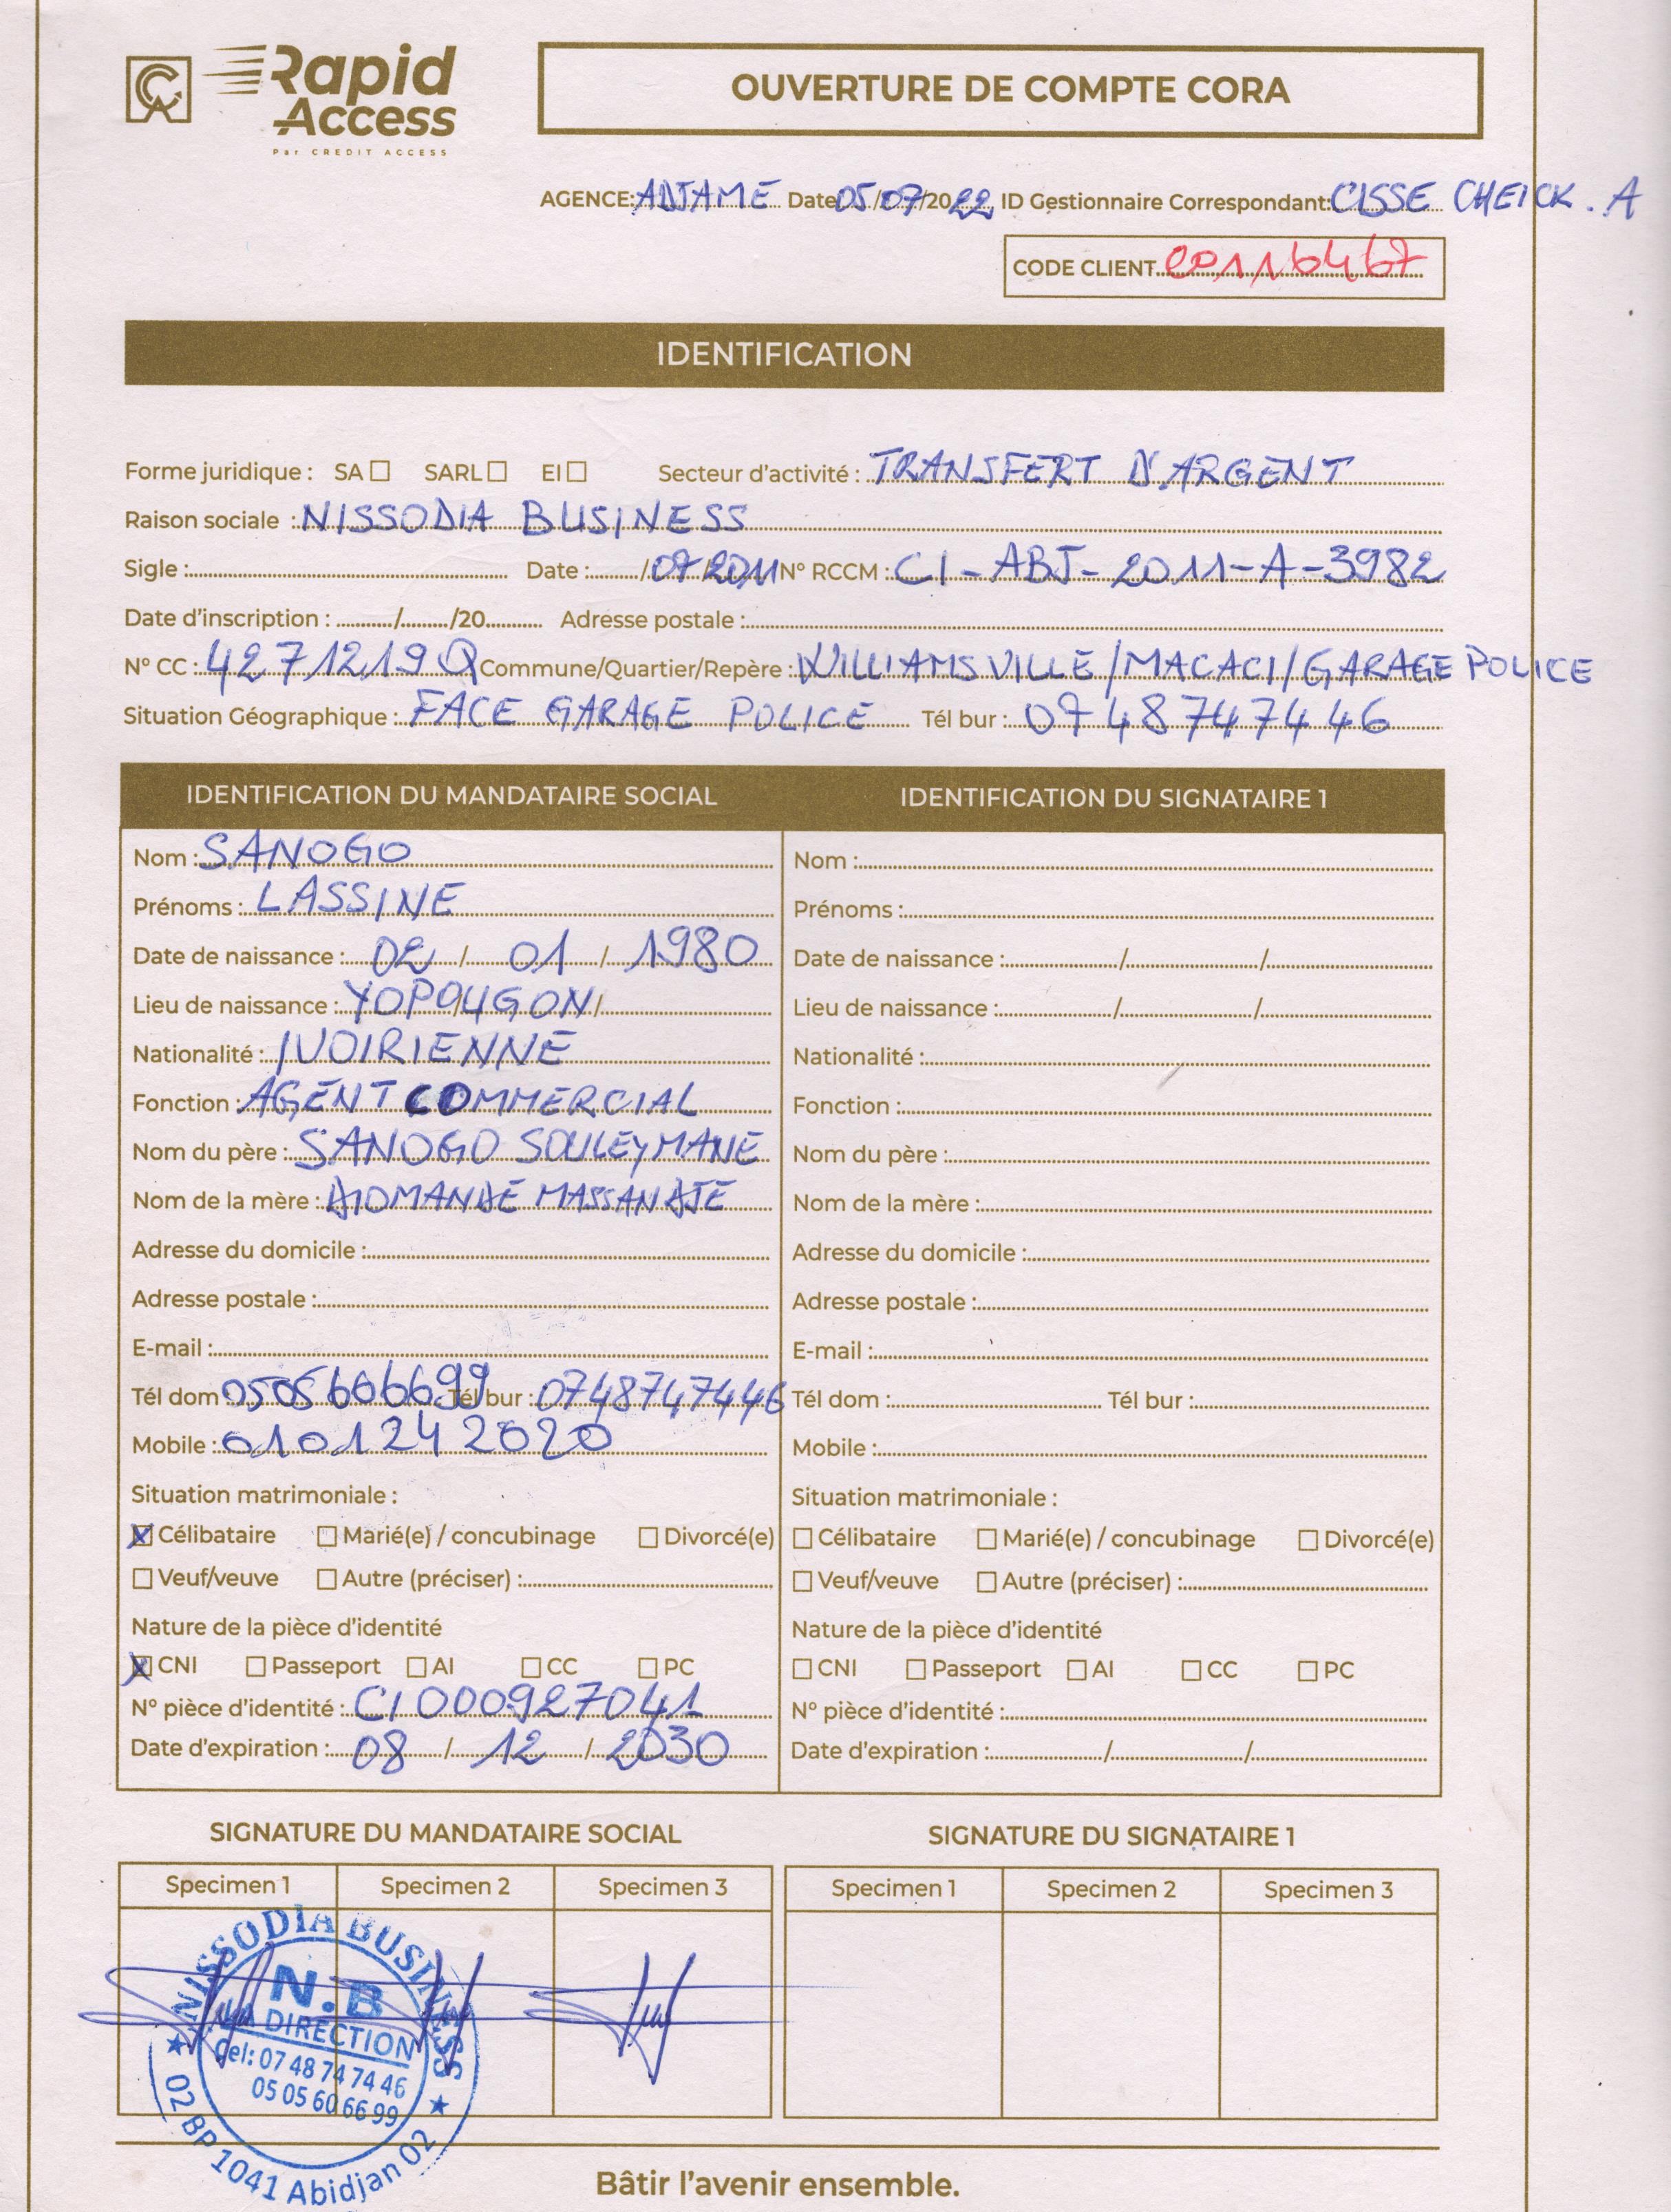 CA Rapid Access
Par CREDIT ACCESS
OUVERTURE DE COMPTE CORA
AGENCE: ADJAME Date 05/07/2022 ID Gestionnaire Correspondant: CISSE CHEICK.A
CODE CLIENT 00116467
IDENTIFICATION
Forme juridique : SA ☐ SARL ☐ EI ☐ Secteur d'activité : TRANSFERT D'ARGENT
Raison sociale : NISSODIA BUSINESS
Sigle : Date : /07/2011 N° RCCM : CI-ABJ-2011-A-3982
Date d'inscription : / /20 Adresse postale :
N° CC : 4271219 Q Commune/Quartier/Repère : WILLIAMSVILLE/MACACI/GARAGE POLICE
Situation Géographique : FACE GARAGE POLICE Tél bur : 0748747446
IDENTIFICATION DU MANDATAIRE SOCIAL
Nom : SANOGO
Prénoms : LASSINE
Date de naissance : 02 / 01 / 1980
Lieu de naissance : YOPOUGON /
Nationalité : IVOIRIENNE
Fonction : AGENT COMMERCIAL
Nom du père : SANOGO SOULEYMANE
Nom de la mère : DIOMANDE MASSANDJE
Adresse du domicile :
Adresse postale :
E-mail :
Tél dom 0505606699 Tél bur : 0748747446
Mobile : 0101242020
Situation matrimoniale :
☒ Célibataire ☐ Marié(e) / concubinage ☐ Divorcé(e)
☐ Veuf/veuve ☐ Autre (préciser) :
Nature de la pièce d'identité
☒ CNI ☐ Passeport ☐ AI ☐ CC ☐ PC
N° pièce d'identité : CI000927041
Date d'expiration : 08 / 12 / 2030
IDENTIFICATION DU SIGNATAIRE 1
Nom :
Prénoms :
Date de naissance : / /
Lieu de naissance : / /
Nationalité :
Fonction :
Nom du père :
Nom de la mère :
Adresse du domicile :
Adresse postale :
E-mail :
Tél dom : Tél bur :
Mobile :
Situation matrimoniale :
☐ Célibataire ☐ Marié(e) / concubinage ☐ Divorcé(e)
☐ Veuf/veuve ☐ Autre (préciser) :
Nature de la pièce d'identité
☐ CNI ☐ Passeport ☐ AI ☐ CC ☐ PC
N° pièce d'identité :
Date d'expiration : / /
SIGNATURE DU MANDATAIRE SOCIAL
Specimen 1 Specimen 2 Specimen 3
NISSODIA BUSINESS
N.B
LA DIRECTION
Cel: 07 48 74 74 46
05 05 60 66 99
02 BP 1041 Abidjan 02
SIGNATURE DU SIGNATAIRE 1
Specimen 1 Specimen 2 Specimen 3
Bâtir l'avenir ensemble.